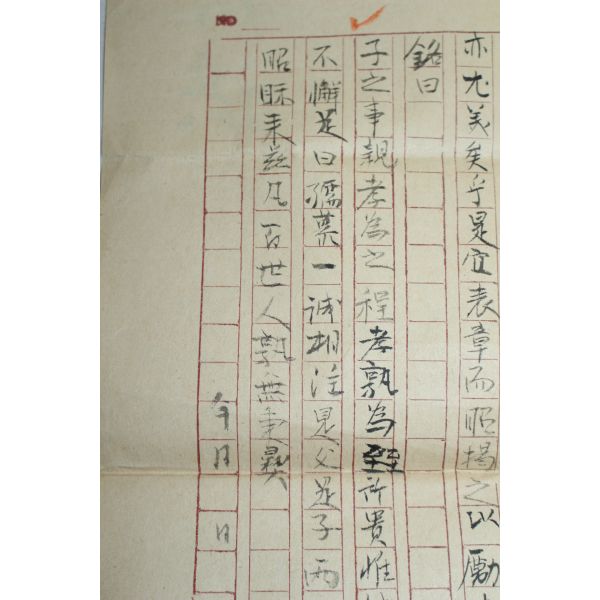 亦尤美矣乎是宜表章而昭揚之以勵
銘曰
子之事親孝為之程孝孰為至所貴惟
不懈是曰孺慕一誠相注是父是子兩
昭眎来玆凡百世人孰無秉彛
年月日
NO